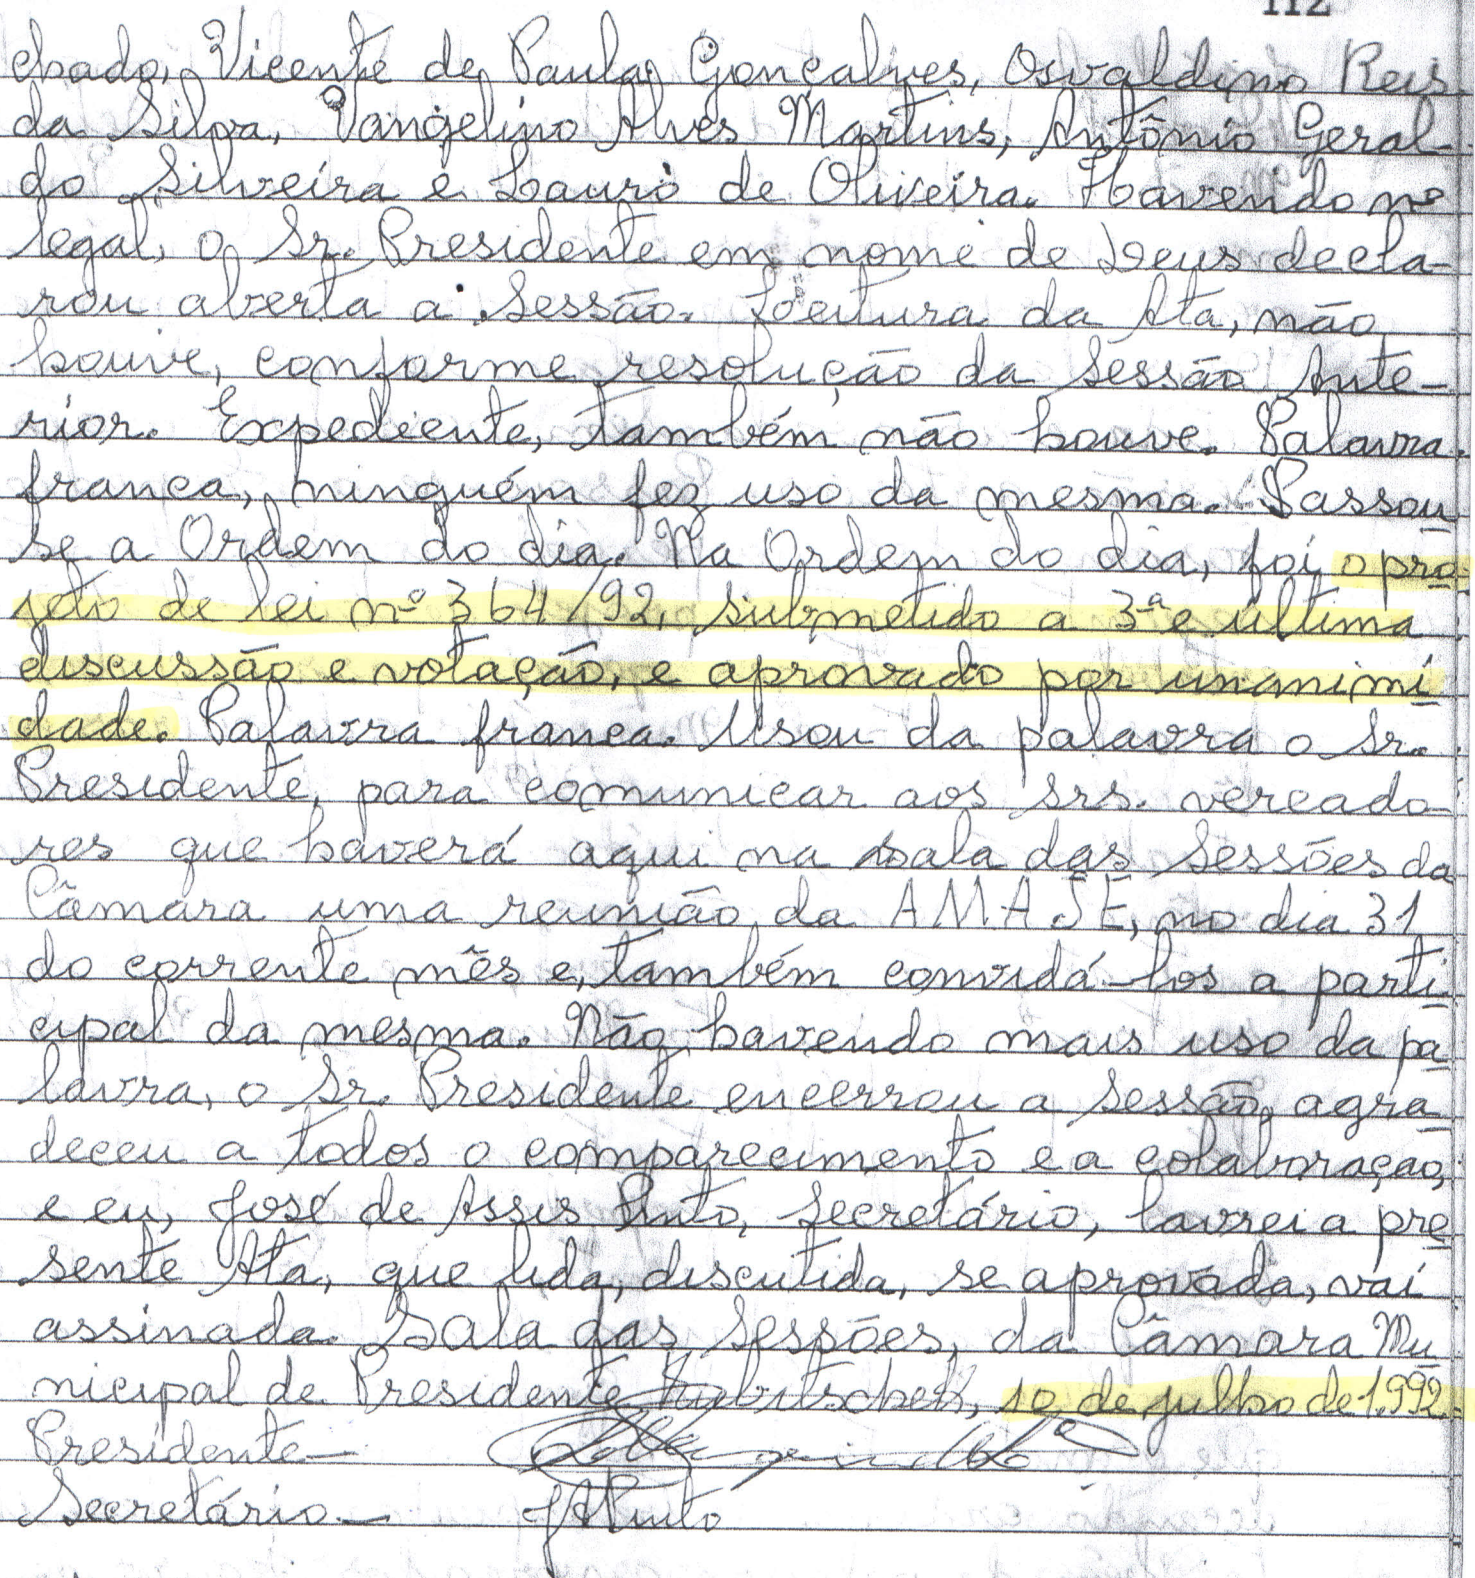 112
chado, Vicente de Paula Gonçalves, Osvaldino Reis
da Silva, Vangelino Alves Martins, Antônio Geral-
do Silveira e Lauro de Oliveira. Havendo nº
legal, o Sr. Presidente em nome de Deus decla-
rou aberta a Sessão. Leitura da Ata, não
houve, conforme resolução da Sessão Ante-
rior. Expediente, também não houve. Palavra
franca, ninguém fez uso da mesma. Passou
se a Ordem do dia. Na Ordem do dia, foi o pro-
jeto de lei nº 364/92, submetido a 3ª e última
discussão e votação, e aprovado por unanimi
dade. Palavra franca. Usou da palavra o Sr.
Presidente, para comunicar aos srs. vereado-
res que haverá aqui na sala das Sessões da
Câmara uma reunião da AMAJE, no dia 31
do corrente mês e, também convidá-los a parti
cipal da mesma. Não havendo mais uso da pa
lavra, o Sr. Presidente encerrou a Sessão, agra
deceu a todos o comparecimento e a colaboração,
e eu, José de Assis Pinto, Secretário, lavrei a pre
sente Ata, que lida, discutida, se aprovada, vai
assinada. Sala das Sessões, da Câmara Mu
nicipal de Presidente Kubitschek, 10 de julho de 1.992.
Presidente—
Secretário— JAPinto